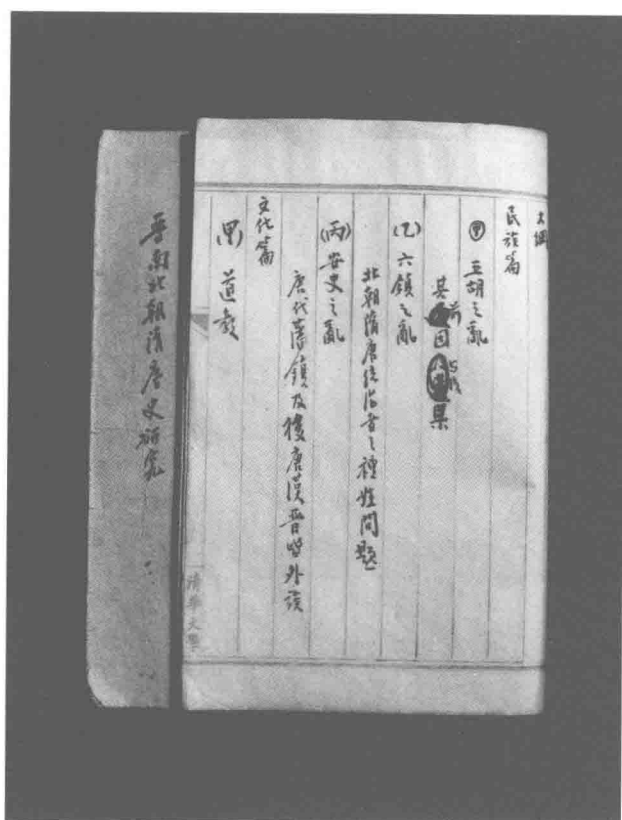 大綱
民族篇
(甲) 五胡之亂
其前因与後果
(乙) 六鎮之亂
北朝隋唐統治者之種姓問題
(丙) 安史之亂
唐代藩鎮及後唐漢晉皆外族
文化篇
(甲) 道教
清華大學
晉南北朝隋唐史研究